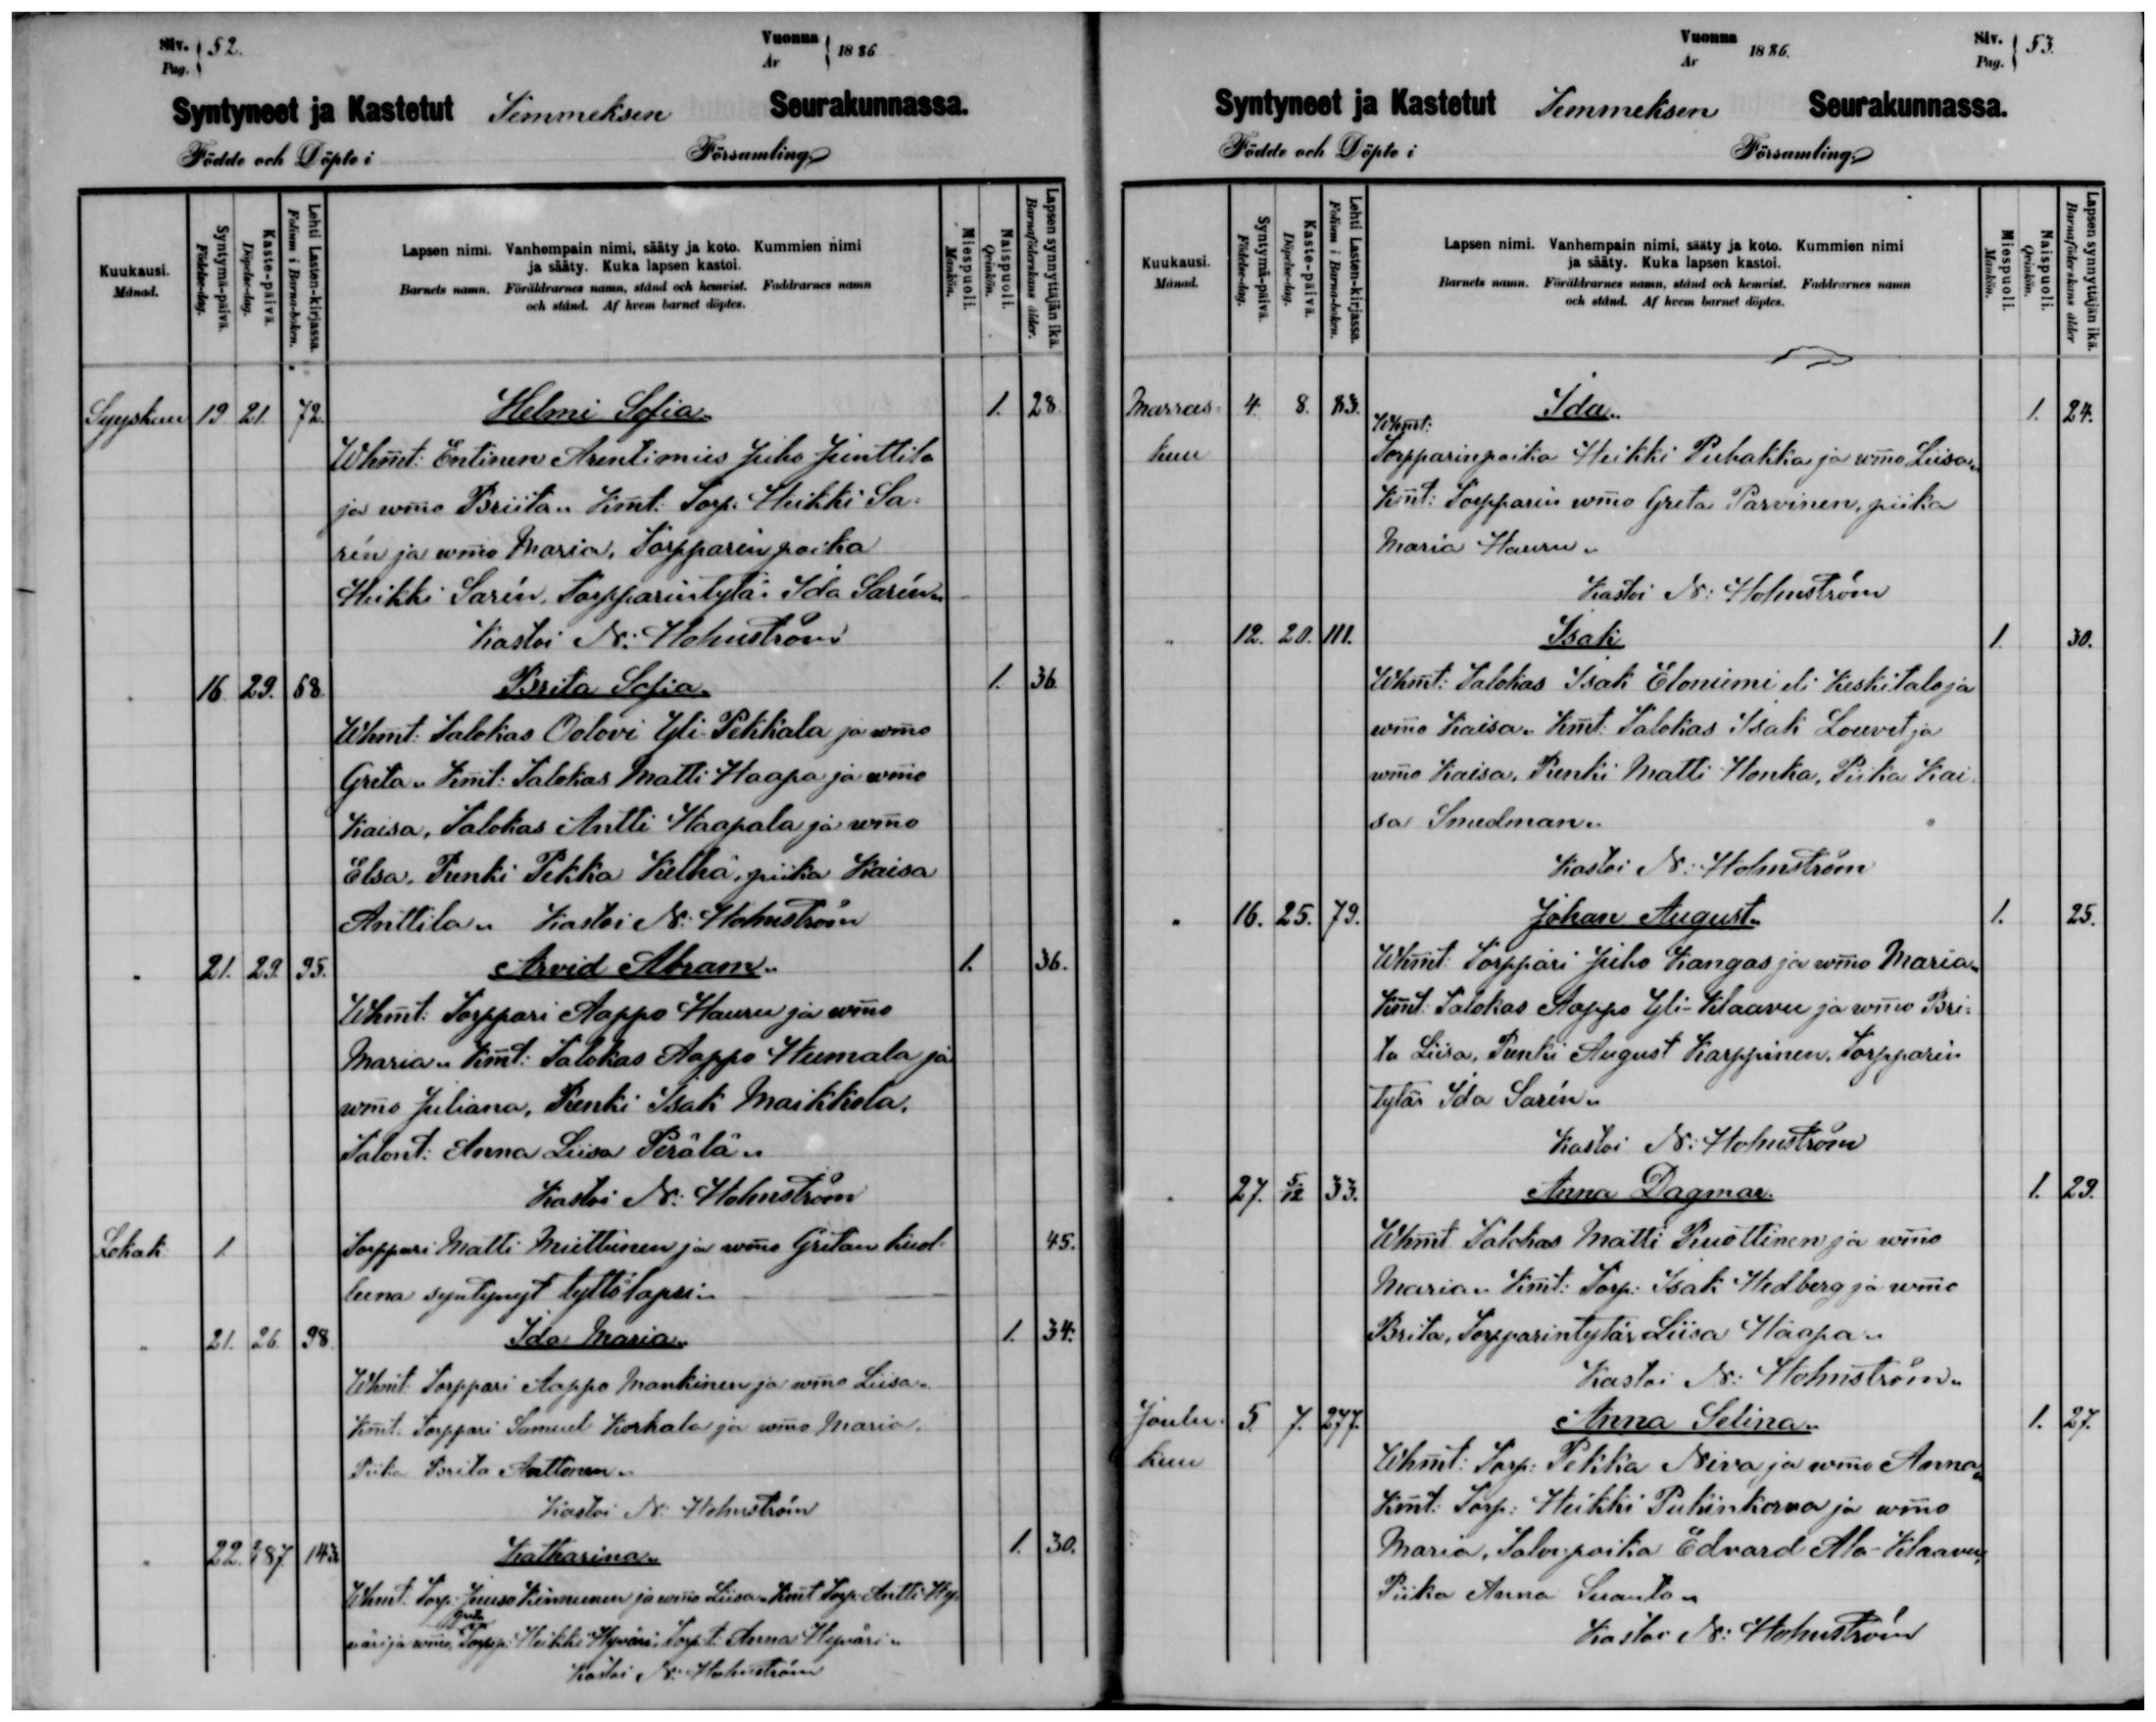 Siv. 52.
Pag.
Vuonna 1886
År
Syntyneet ja Kastetut Temmeksen Seurakunnassa.
Födde och Döpte i Församling
Kuukausi.
Månad.
Syntymä-päivä.
Födelse-dag.
Kaste-päivä.
Döpelse-dag.
Lehti Lasten-kirjassa.
Folium i Barna-boken.
Lapsen nimi. Vanhempain nimi, sääty ja koto. Kummien nimi
ja sääty. Kuka lapsen kastoi.
Barnets namn. Föräldrarnes namn, stånd och hemvist. Faddrarnes namn
och stånd. Af hvem barnet döptes.
Miespuoli.
Mankön.
Naispuoli.
Qvinkön.
Lapsen synnyttäjän ikä.
Barnaföderskans ålder.
Syyskuu 19 21. 72. Helmi Sofia„ 1. 28.
Whm̅t: Entinen Arentimies Juho Junttila
ja wm̅o Briita„ Km̅t: Torp: Heikki Sa=
rén ja wm̅o Maria, Torpparin poika
Heikki Sarén, Torpparintytär Ida Sarén„
Kastoi N: Holmström
„ 16. 29. 68. Brita Sofia„ 1. 36.
Whm̅t: Talokas Oolovi Yli-Pekkala ja wm̅o
Greta„ Km̅t: Talokas Matti Haapa ja wm̅o
Kaisa, Talokas Antti Haapala ja wm̅o
Elsa, Renki Pekka Keltä, piika Kaisa
Anttila„ Kastoi N: Holmström
„ 21. 29. 95. Arvid Abram„ 1. 36.
Whm̅t: Torppari Aappo Hauru ja wm̅o
Maria„ Km̅t: Talokas Aappo Humala ja
wm̅o Juliana, Renki Isak Maikkola,
Talont: Anna Liisa Perälä„
Kastoi N: Holmström
Lokak. 1. Torppari Matti Miettunen ja wm̅o Gretan kuol= 45.
leena syntynyt tyttölapsi„
„ 21. 26. 98. Ida Maria„ 1. 34.
Whm̅t: Torppari Aappo Mankinen ja wm̅o Liisa„
Km̅t. Torppari Samuel Korkala ja wm̅o Maria,
Piika Brita Anttonen„
Kastoi N: Holmström
„ 22. 143 Katharina„ 1. 30.
Whm̅t: Torp: Juuso Kinnunen ja wm̅o Liisa„ Km̅t Torp: Antti Hy=
Greta
väri ja wm̅o, Torpp: Heikki Hyväri, Torp.t: Anna Hyväri„
Kastoi N: Holmström
Vuonna 1886.
År
Siv. 53.
Pag.
Syntyneet ja Kastetut Temmeksen Seurakunnassa.
Födde och Döpte i Församling
Kuukausi.
Månad.
Syntymä-päivä.
Födelse-dag.
Kaste-päivä.
Döpelse-dag.
Lehti Lasten-kirjassa.
Folium i Barna-boken.
Lapsen nimi. Vanhempain nimi, sääty ja koto. Kummien nimi
ja sääty. Kuka lapsen kastoi.
Barnets namn. Föräldrarnes namn, stånd och hemvist. Faddrarnes namn
och stånd. Af hvem barnet döptes.
Miespuoli.
Mankön.
Naispuoli.
Qvinkön.
Lapsen synnyttäjän ikä.
Barnaföderskans ålder
Marras= 4. 8. 83. Ida„ 1. 24.
Whm̅t:
kuu Torpparinpoika Heikki Puhakka ja wm̅o Liisa„
Km̅t: Torpparin wm̅o Greta Parvinen, piika
Maria Hauru„
Kastoi N: Holmström
„ 12. 20. 111. Isak 1. 30.
Whm̅t: Talokas Isak Eloniemi eli Keskitalo ja
wm̅o Kaisa„ Km̅t: Talokas Isak Louvet ja
wm̅o Kaisa, Renki Matti Honka, Piika Kai=
sa Smedman„
Kastoi N: Holmström
„ 16. 25. 79. Johan August„ 1. 25.
Whm̅t: Torppari Juho Kangas ja wm̅o Maria„
Km̅t: Talokas Aappo Yli-Klaavu ja wm̅o Bri=
ta Liisa, Renki August Karppinen, Torpparin
tytär Ida Sarén„
Kastoi N: Holmström
„ 27. 5/12 33. Anna Dagmar. 1. 29.
Whm̅t Talokas Matti Ruottinen ja wm̅o
Maria„ Km̅t: Torp: Isak Hedberg ja wm̅o
Brita, Torpparintytär Liisa Haapa„
Kastoi N: Holmström„
Joulu= 5. 7. 277. Anna Selina„ 1. 27.
kuu Whm̅t: Torp: Pekka Niva ja wm̅o Anna„
Km̅t: Torp: Heikki Puhinkorva ja wm̅o
Maria, Talon poika Edvard Ala-Klaavu,
Piika Anna Suanto„
Kastoi N: Holmström